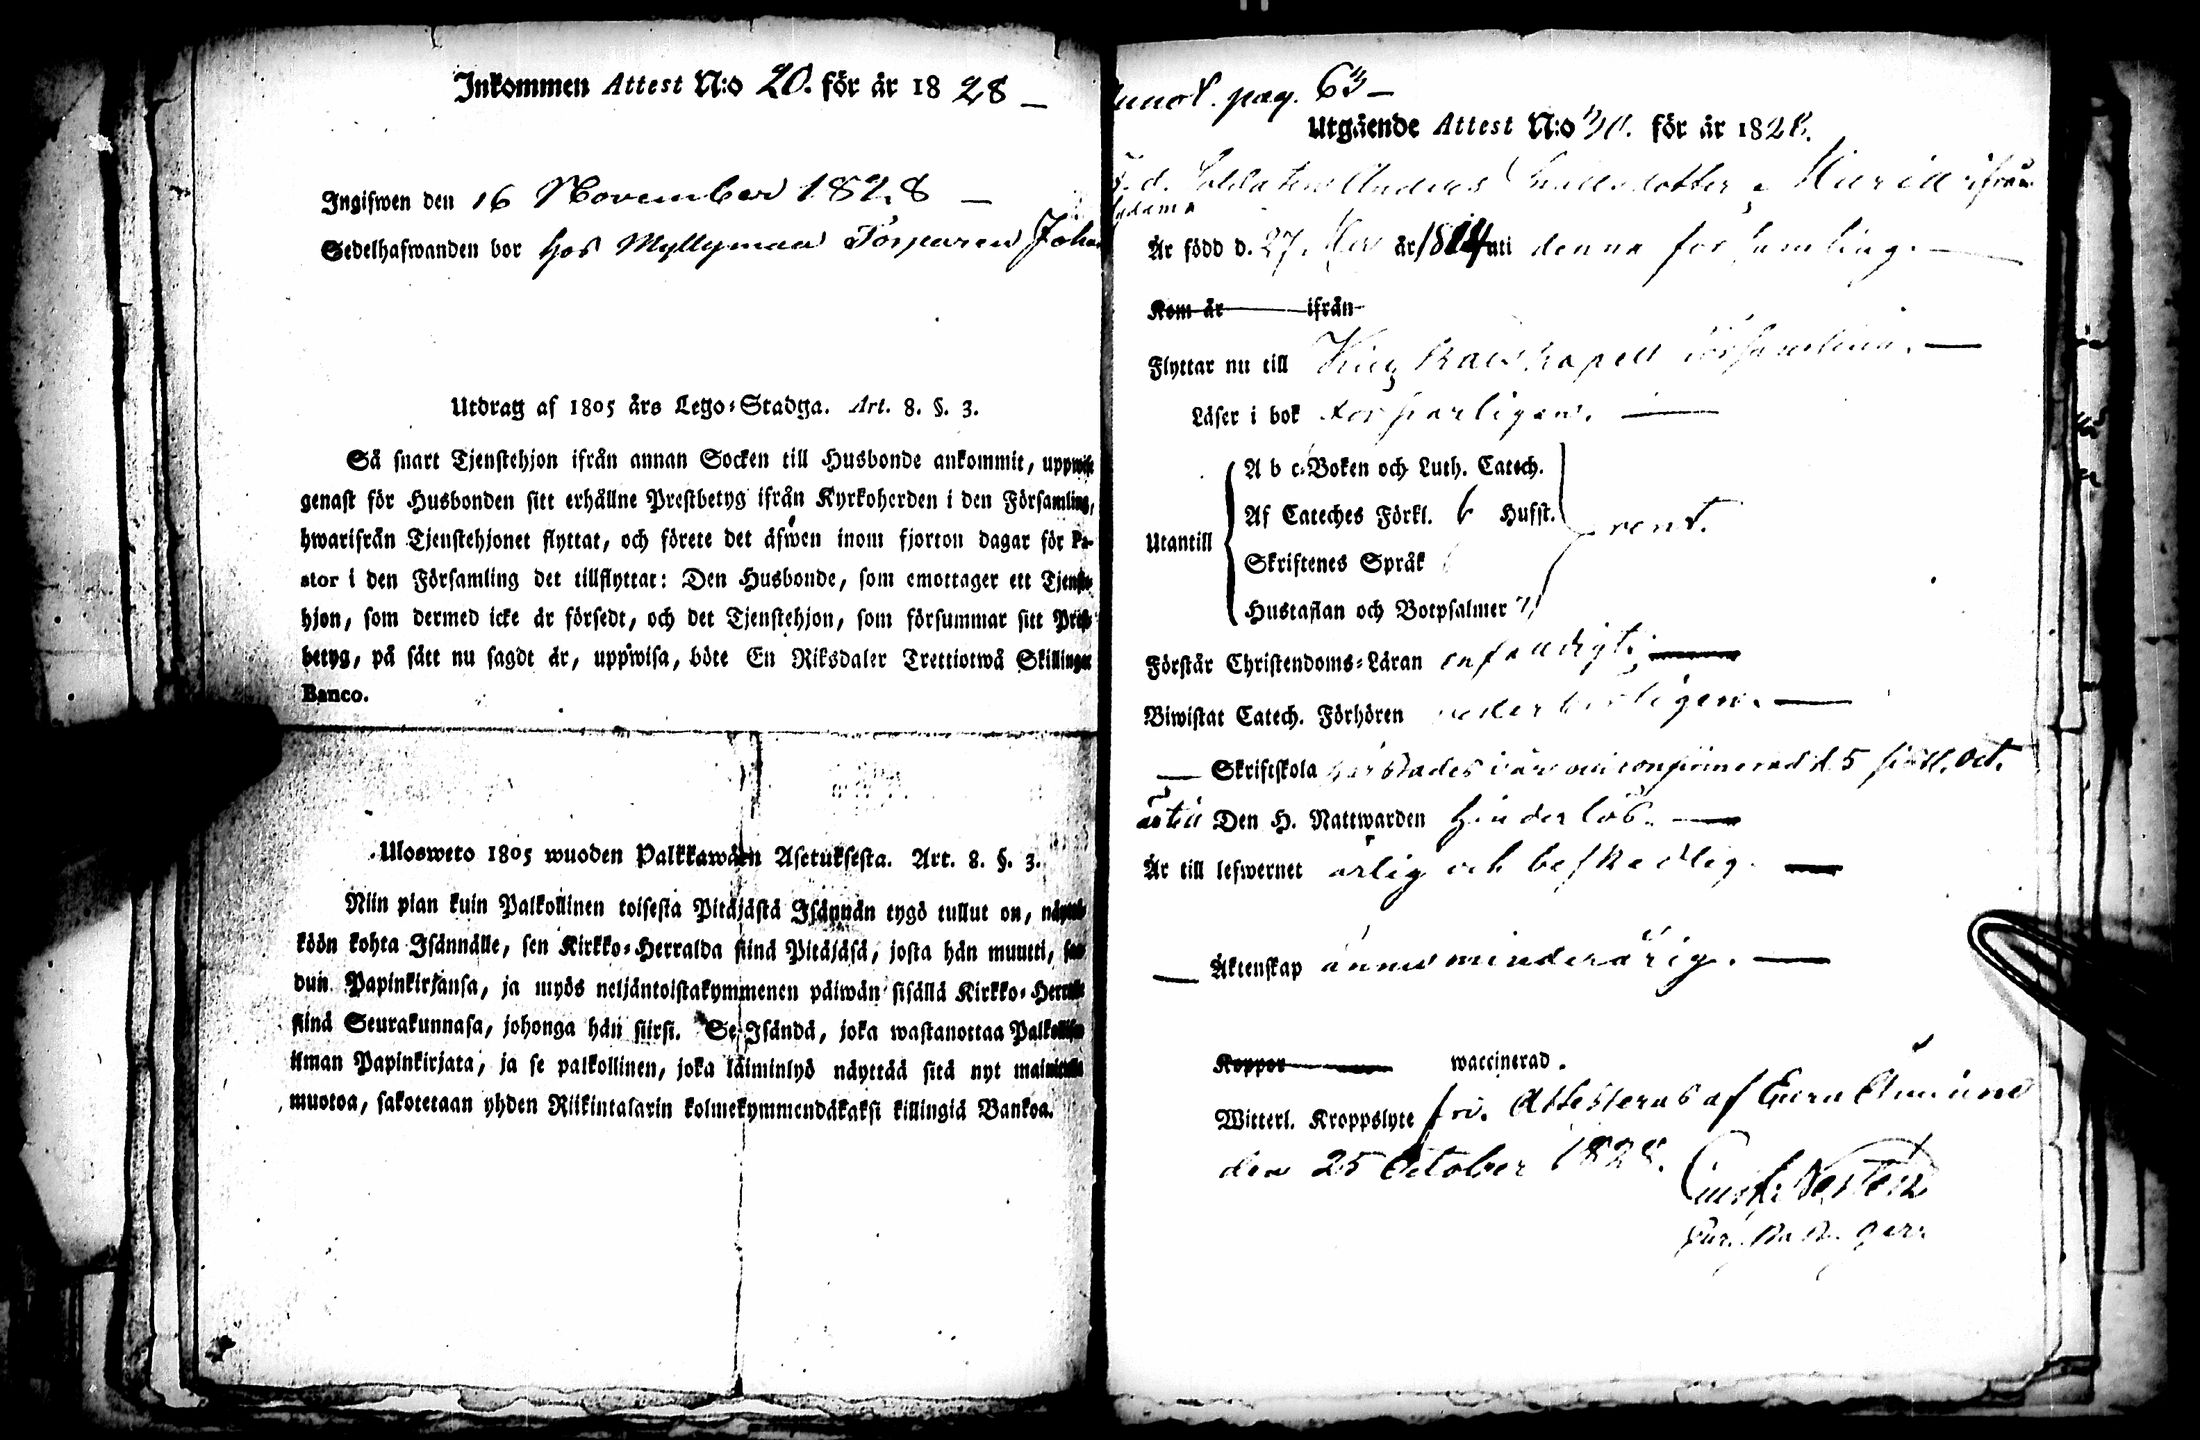 Inkommen Attest N:o 20. för år 1828 –
Ingifwen den 16 November 1828 –
Sedelhafwanden bor hos Myllymaa Torparen Joha
Utdrag af 1805 års Lego-Stadga. Art. 8. §. 3.
Så snart Tjenstehjon ifrån annan Socken till Husbonde ankommit, uppwise
genast för Husbonden sitt erhållne Prestbetyg ifrån Kyrkoherden i den Församling,
hwarifrån Tjenstehjonet flyttat, och förete det äfwen inom fjorton dagar för Pa-
stor i den Församling det tillflyttat: Den Husbonde, som emottager ett Tjenste-
hjon, som dermed icke är försedt, och det Tjenstehjon, som försummar sitt Prest-
betyg, på sätt nu sagdt är, uppwisa, böte En Riksdaler Trettiotwå Skillingar
Banco.
Ulosweto 1805 wuoden Palkkawäen Asetuksesta. Art. 8. §. 3.
Niin pian kuin Palkollinen toisesta Pitäjästä Isännän tygö tullut on, näyttä-
köön kohta Isännälle, sen Kirkko-Herralda siinä Pitäjäsä, josta hän muutti, saa-
dun Papinkirjansa, ja myös neljäntoistakymmenen päiwän sisällä Kirkko-Herralle
siinä Seurakunnasa, johonga hän siirsi. Se Isändä, joka wastanottaa Palkollisen
ilman Papinkirjata, ja se palkollinen, joka laiminlyö näyttää sitä nyt mainitulla
muotoa, sakotetaan yhden Riikintalarin kolmekymmendäkaksi killingiä Bankoa.
pag. 63 –
Utgående Attest N:o 30. för år 1828.
F. d. Soldaten Anders dotter Maria ifrån
Är född d. 27. Nov år 1814 uti denna församling. –
Kom år ifrån
Flyttar nu till kapell församling. –
Läser i bok försvarligen. –
Utantill
A b c-Boken och Luth. Catech.
Af Cateches Förkl. 6 Husst.
Skriftenes Språk
Hustaflan och Botpsalmer
rent.
Förstår Christendoms-Läran enfaldigt; –
Biwistat Catech. Förhören wederbörligen. –
– Skriftskola härstädes i år och confirmerad d. 5 sistl. Oct.
Den H. Nattwarden hinderlös. –
Är till lefwernet ärlig och beskedlig. –
– Äktenskap ännu minderårig. –
Koppor waccinerad.
Witterl. Kroppslyte fri. Attesteras af Eura Ämine
den 25 October 1828.